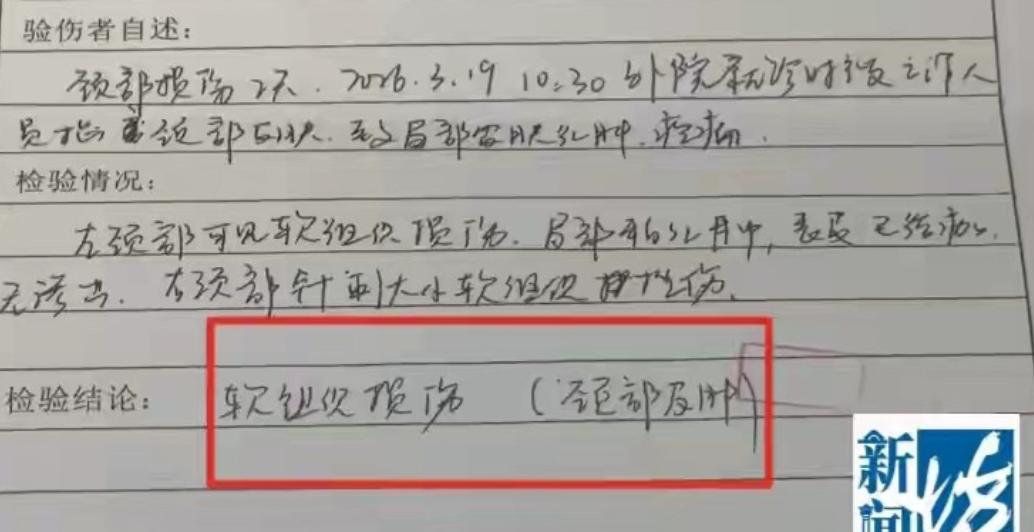 验伤者自述：
颈部损伤2天. 2026.3.19 10:30 外院就诊时被工作人
员 颈部 致局部皮肤红肿. 疼痛.
检验情况：
左颈部可见软组织损伤. 局部 红肿, 表皮已结痂.
无渗出. 右颈部针刺大小软组织挫伤.
检验结论： 软组织损伤 (颈部皮肤)
新闻坊